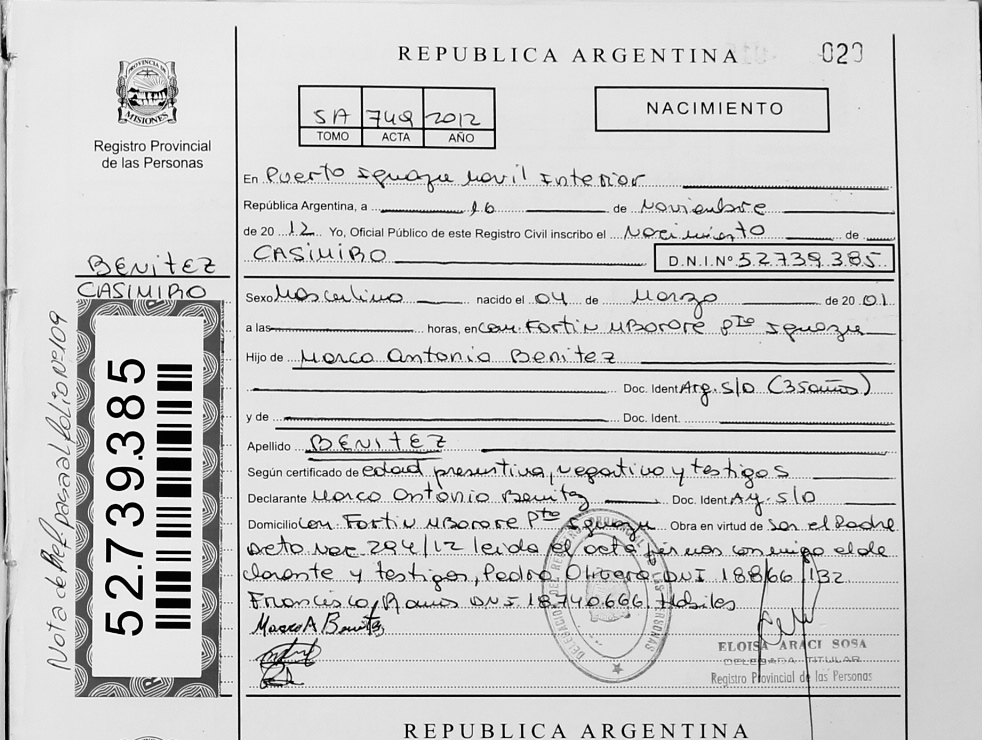 REPUBLICA ARGENTINA
020
PROVINCIA DE
MISIONES
Registro Provincial
de las Personas
5A 749 2012
TOMO ACTA AÑO
NACIMIENTO
En Puerto Iguazu Movil Interior
República Argentina, a 16 de Noviembre
de 20 12 Yo, Oficial Público de este Registro Civil inscribo el Nacimiento de
CASIMIRO D.N.I. Nº 52739385
BENITEZ
CASIMIRO
52.739.385
Nota de Ref. pasa al folio Nº 109
Sexo Masculino nacido el 04 de Marzo de 20 01
a las horas, en com. Fortin Mborore Pto Iguazu
Hijo de Marco Antonio Benitez
Doc. Ident. Arg. S/D (35 años)
y de Doc. Ident.
Apellido BENITEZ
Según certificado de edad presuntiva, negativo y testigos
Declarante Marco Antonio Benitez Doc. Ident. Arg. S/D
Domicilio com. Fortin Mborore Pto Iguazu Obra en virtud de ser el Padre
Dcto Nac 294/12 leida el acta firman conmigo el de
clarante y testigos, Pedro Olivera DNI 18.866.132
Francisco Ramos DNI 18.740.666 Habiles
Marco A. Benitez
ELOISA ARACI SOSA
DELEGADA TITULAR
Registro Provincial de las Personas
REPUBLICA ARGENTINA